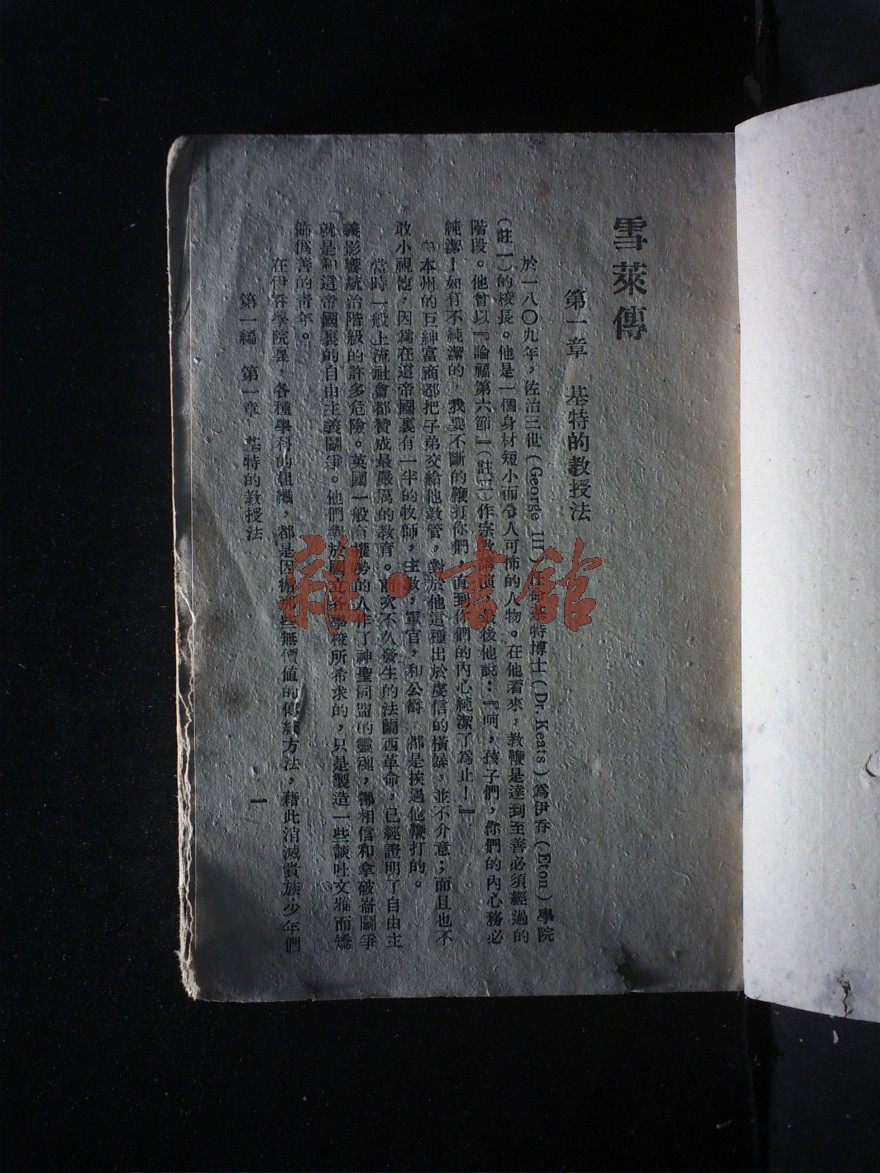 雪萊傳
第一章　基特的教授法
於一八〇九年，佐治三世(George III)任命基特博士(Dr. Keats)爲伊呑(Eton)學院
(註一)的校長。他是一個身材短小而令人可怖的人物。在他看來，教鞭是達到至善必須經過的
階段。他曾以『論福第六節』(註二)作宗教講演，最後他說：『呵，孩子們，你們的內心務必
純潔！如有不純潔的，我要不斷的鞭打你們，直到你們的內心純潔了為止！』
本州的巨紳富商都把子弟交給他教管，對於他這種出於虔信的橫暴，並不介意；而且也不
敢小視他，因爲在這帝國裏有一半的牧師，主教，軍官，和公爵，都是挨過他鞭打的。
當時一般上流社會都贊成最嚴厲的教育。前次不久發生的法蘭西革命，已經證明了自由主
義影響統治階級的許多危險。英國一般有權勢的人作了神聖同盟的靈魂，都相信和拿破崙鬬爭
就是和這帝國裏的自由主義鬬爭。他們對於國立各學校所希求的，只是製造一些談吐文雅而矯
飾僞善的青年。
在伊呑學院裏，各種學科的組織，都是因襲那些無價値的傳統方法，藉此消滅貴族少年們
第一編　第一章　基特的教授法
一
雜·書館